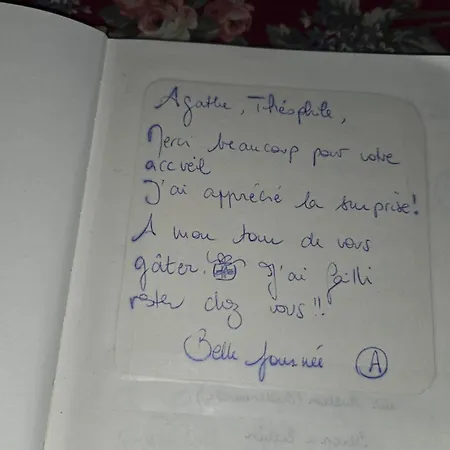 Agathe, Théophile,
Merci beaucoup pour votre
accueil
J'ai apprécié la surprise!
A mon tour de vous
gâter. J'ai failli
rester chez vous!!
Belle journée A